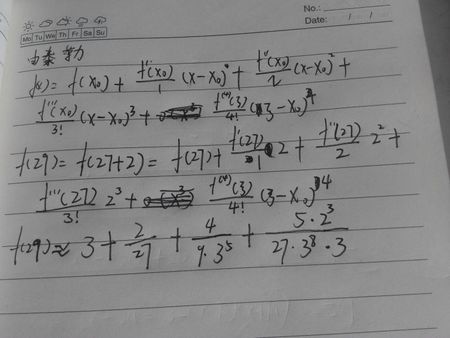 No.:
Date: / /
Mo Tu We Th Fr Sa Su
由泰勒
f(x) = f(x₀) + f'(x₀)/1 (x-x₀) + f''(x₀)/2 (x-x₀)² +
f'''(x₀)/3! (x-x₀)³ + f⁽⁴⁾(3)/4! (3-x₀)⁴
f(29) = f(27+2) = f(27) + f'(27)/1 2 + f''(27)/2 2² +
f'''(27)/3! 2³ + f⁽⁴⁾(3)/4! (3-x₀)⁴
f(29) ≈ 3 + 2/27 + 4/9·3⁵ + 5·2³/27·3⁸·3